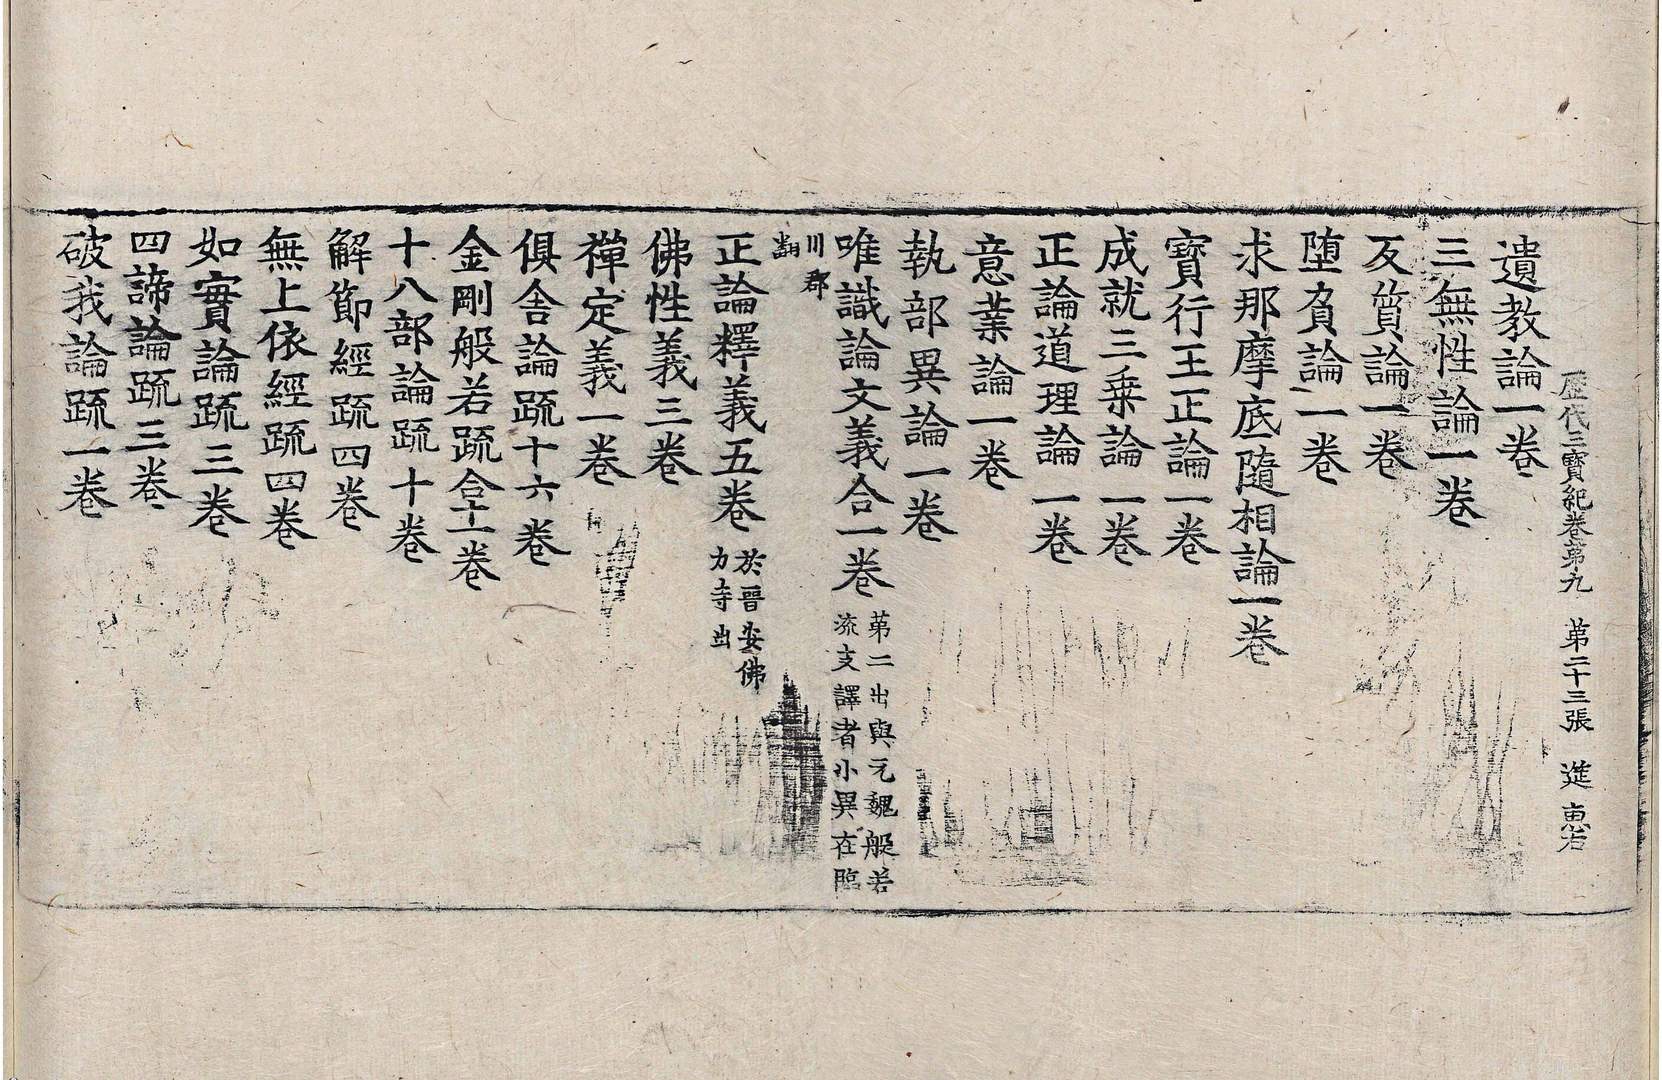 歷代三寶紀卷第九　第二十三張　進
遺教論一卷
三無性論一卷
反質論一卷
墮負論一卷
求那摩底隨相論一卷
寶行王正論一卷
成就三乗論一卷
正論道理論一卷
意業論一卷
執部異論一卷
唯識論文義合一卷
第二出與元魏般若
流支譯者小異在臨
川郡
翻
正論釋義五卷
於晉安佛
力寺出
佛性義三卷
禪定義一卷
俱舍論䟽十六卷
金剛般若䟽合十一卷
十八部論䟽十卷
解節經䟽四卷
無上依經䟽四卷
如實論䟽三卷
四諦論䟽三卷
破我論䟽一卷